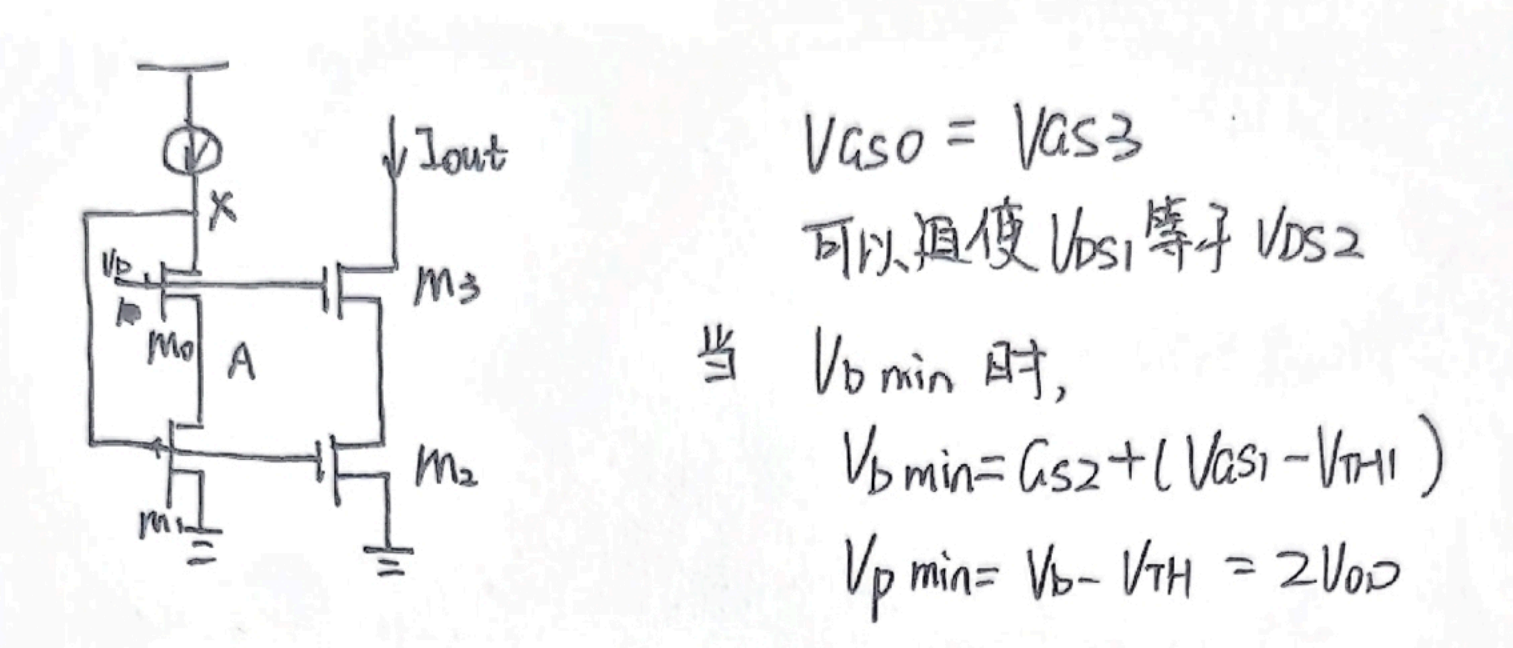 Iout
X
Vb
M3
M0
A
M2
M1
VGS0 = VGS3
可以迫使 VDS1 等于 VDS2
当 Vb min 时,
Vb min = GS2 + ( VGS1 - VTH1 )
Vp min = Vb - VTH = 2VOD